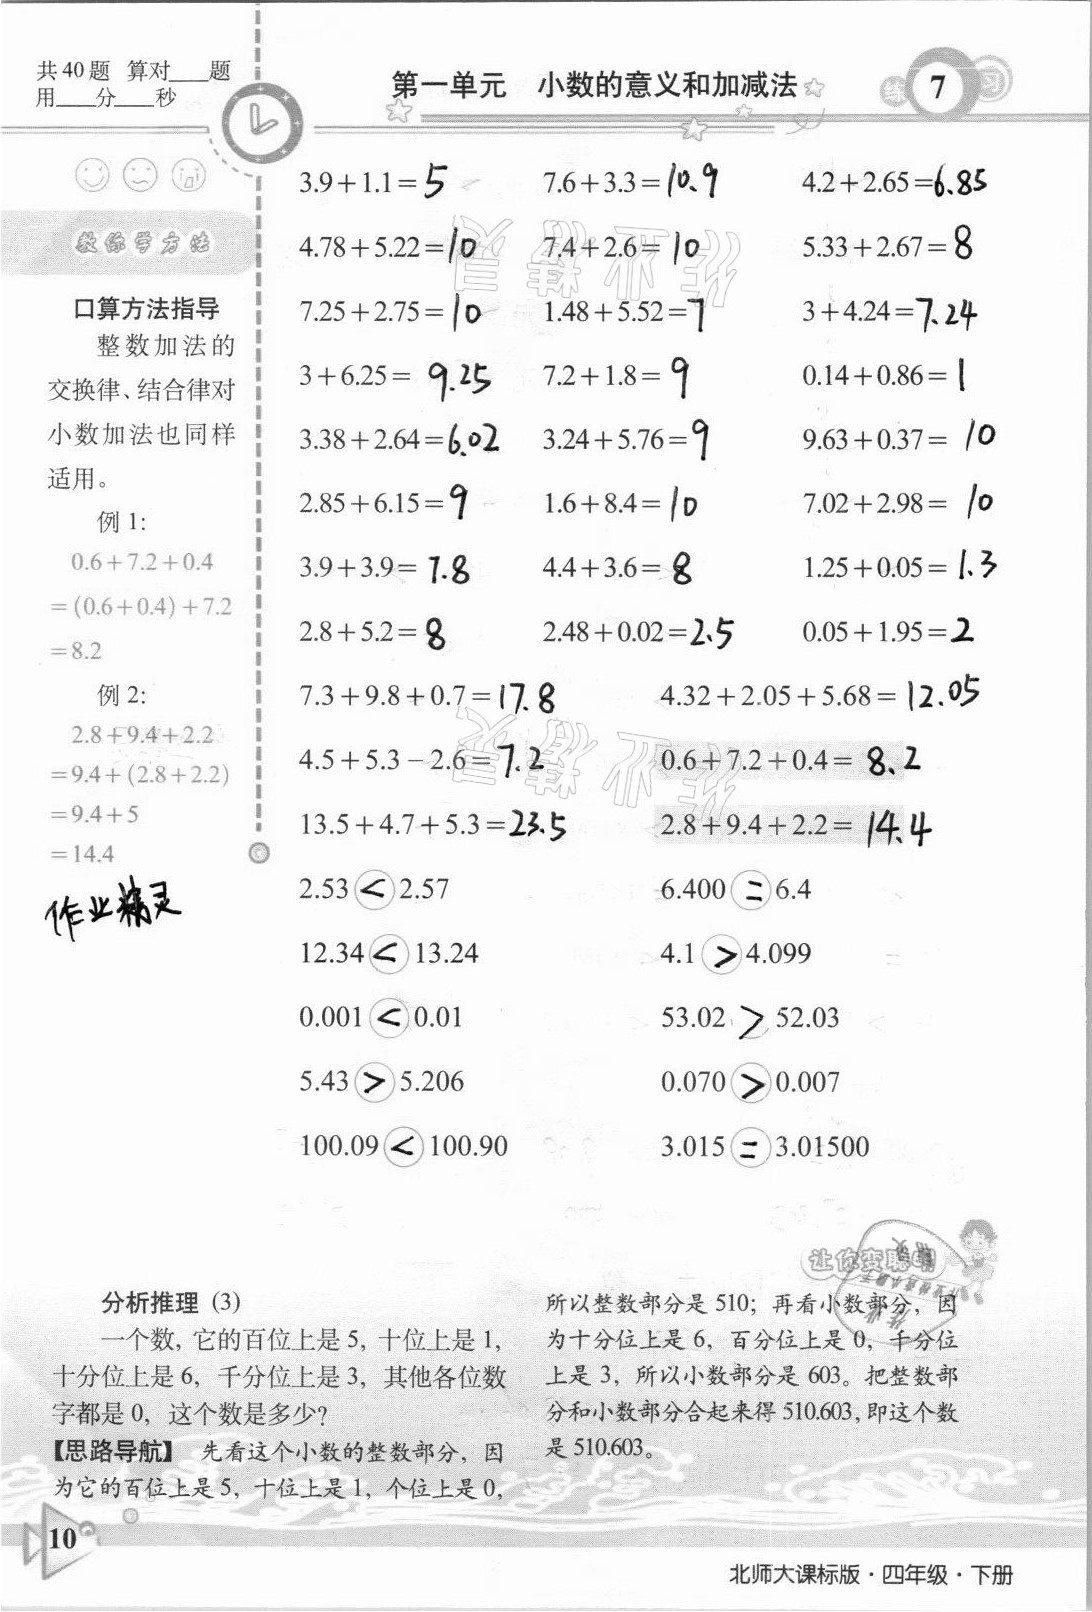 共40题 算对___题
用___分___秒
第一单元 小数的意义和加减法
练 7 习
教你学方法
口算方法指导
整数加法的
交换律、结合律对
小数加法也同样
适用。
例1:
0.6+7.2+0.4
=(0.6+0.4)+7.2
=8.2
例2:
2.8+9.4+2.2
=9.4+(2.8+2.2)
=9.4+5
=14.4
作业精灵
3.9+1.1=5 7.6+3.3=10.9 4.2+2.65=6.85
4.78+5.22=10 7.4+2.6=10 5.33+2.67=8
7.25+2.75=10 1.48+5.52=7 3+4.24=7.24
3+6.25=9.25 7.2+1.8=9 0.14+0.86=1
3.38+2.64=6.02 3.24+5.76=9 9.63+0.37=10
2.85+6.15=9 1.6+8.4=10 7.02+2.98=10
3.9+3.9=7.8 4.4+3.6=8 1.25+0.05=1.3
2.8+5.2=8 2.48+0.02=2.5 0.05+1.95=2
7.3+9.8+0.7=17.8 4.32+2.05+5.68=12.05
4.5+5.3-2.6=7.2 0.6+7.2+0.4=8.2
13.5+4.7+5.3=23.5 2.8+9.4+2.2=14.4
2.53<2.57 6.400=6.4
12.34<13.24 4.1>4.099
0.001<0.01 53.02>52.03
5.43>5.206 0.070>0.007
100.09<100.90 3.015=3.01500
作业精灵
作业精灵
让你变聪明
分析推理(3)
一个数,它的百位上是5,十位上是1,
十分位上是6,千分位上是3,其他各位数
字都是0,这个数是多少?
【思路导航】 先看这个小数的整数部分,因
为它的百位上是5,十位上是1,个位上是0,
所以整数部分是510;再看小数部分,因
为十分位上是6,百分位上是0,千分位
上是3,所以小数部分是603。把整数部
分和小数部分合起来得510.603,即这个数
是510.603。
10
北师大课标版·四年级·下册